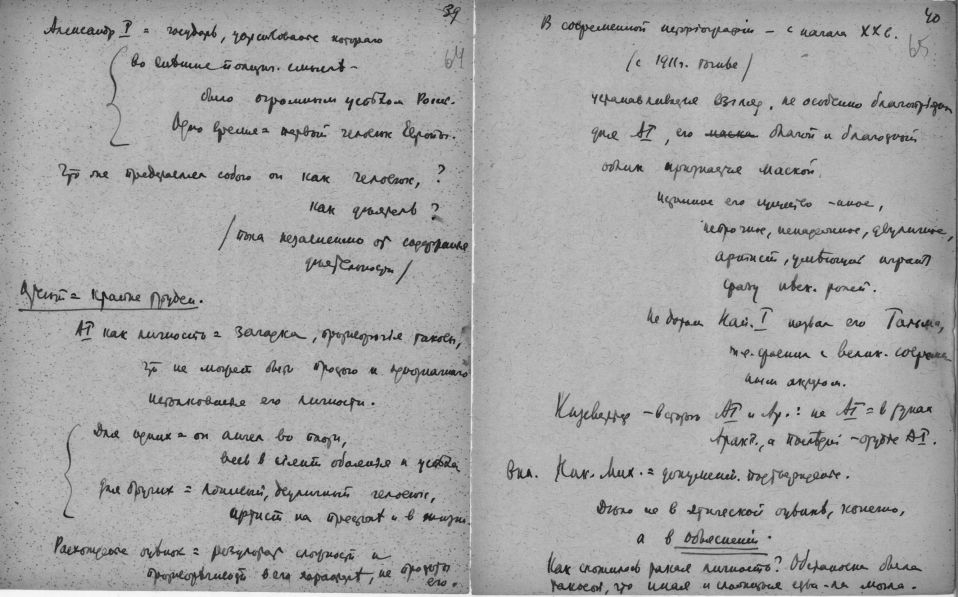 39
64
Александр I = государь, царствование которого
во внешне полит. смысле –
было огромным успехом России.
Одно время = первый человек Европы.
Что же представлял собою он как человек, ?
как деятель ?
/ пока независимо от содержания
деятельности /
Ответ = крайне труден.
АI как личность = загадка, противоречия таковы,
что не может быть простого и однозначного
истолкования его личности.
Для одних = он ангел во плоти,
весь в обаяния и успеха
для других = двуличный человек,
артист на престоле и в жизни.
Расхождение оценок = результат сложности и
противоречивости в его характере, не простоты
его.
40
65
В современной историографии – с начала XX в.
/ с 1911 г. /
устанавливается взгляд, не особенно благоприятн
для АI, его маска благой и благодушный
облик признается маской.
Истинное его существо – иное,
непрочное, ненадежное, двуличное,
артист, умеющий играть
сразу неск. ролей.
Не даром Нап. I назвал его Тальма,
т.е. сравнил с велик. современ
ным актером.
Кизеветтер – в статье АI и Ар.: не АI = в руках
Аракч., а последн – орудие АI.
Вел. Кн. Ник. Мих. = документ. подтверждение.
Дело не в этической оценке, конечно,
а в объяснении.
Как сложилась такая личность? Обстановка была
такова, что иная и сложиться едва-ли могла.